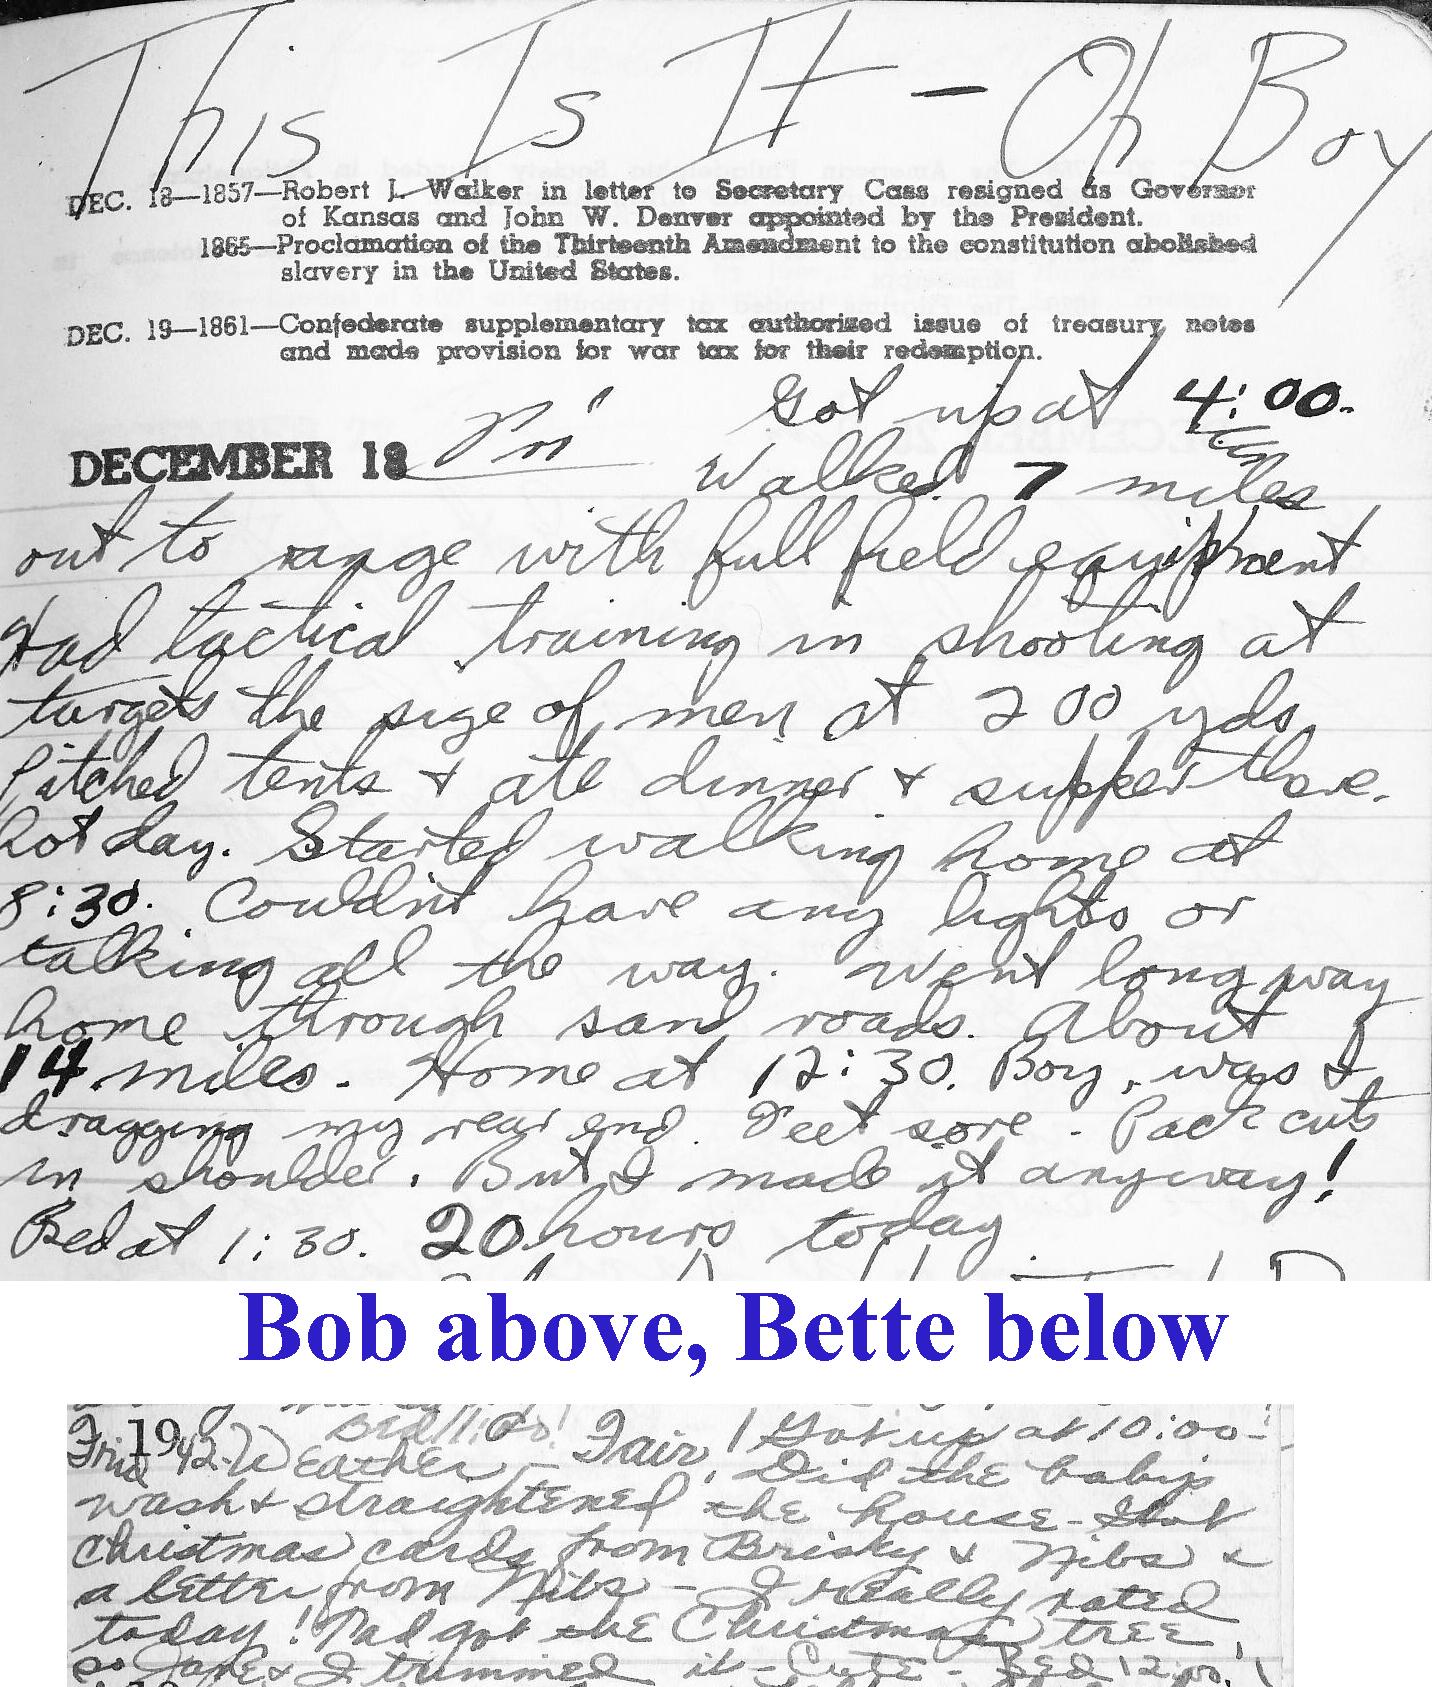 This Is It - Oh Boy
DEC. 18—1857—Robert J. Walker in letter to Secretary Cass resigned as Governor
of Kansas and John W. Denver appointed by the President.
1865—Proclamation of the Thirteenth Amendment to the constitution abolished
slavery in the United States.
DEC. 19—1861—Confederate supplementary tax authorized issue of treasury notes
and made provision for war tax for their redemption.
Got up at 4:00.
DECEMBER 18 Fri Walked 7 miles
out to range with full field equipment
Had tactical training in shooting at
targets the size of men at 200 yds
Pitched tents & ate dinner & supper there.
hot day. Started walking home at
8:30. Couldn't have any lights or
talking all the way. Went long way
home through sand roads. About
14 miles. Home at 12:30. Boy, was I
dragging my rear end. Feet sore. Pack cuts
in shoulder. But I made it anyway!
Bed at 1:30. 20 hours today
Bob above, Bette below
Bed 11:00!
Frid 1942 - Weather - Fair! Got up at 10:00-
Did the baby's
wash & straightened the house - Got
Christmas cards from Brisky & Nibs &
a letter from Nibs - I really rated
today! Dad got the Christmas tree
so Jane & I trimmed it - Cute - Bed 12:00!